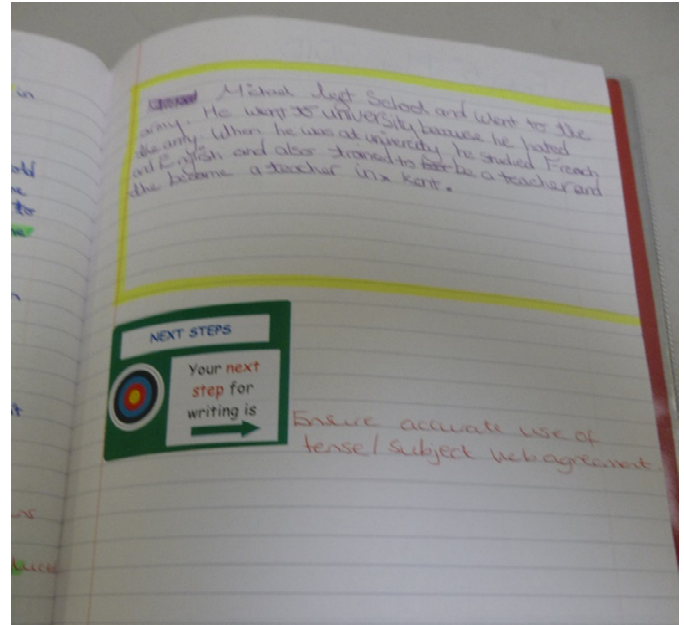 in
Michael left School and went to the
army. He went to university because he hated
the army. When he was at university he studied French
and English and also trained to be a teacher and
the became a teacher in Kent.
old
to
NEXT STEPS
Your next
step for
writing is
Ensure accurate use of
tense/subject verb agreement